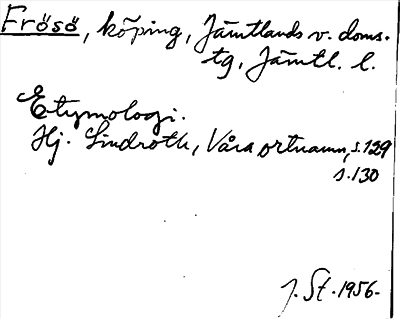 Frösö, köping, Jämtlands v. doms.
tg, Jämtl. l.
Etymologi.
Hj. Lindroth, Våra ortnamn, s. 129
s. 130
J. St. 1956.